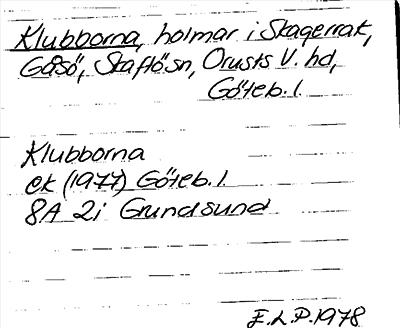 Klubborna, holmar i Skagerrak,
Gåsö, Skaftö sn, Orusts V. hd,
Göteb. l.
Klubborna
ek (1977) Göteb. l.
8A 2i Grundsund
E.L.P. 1978